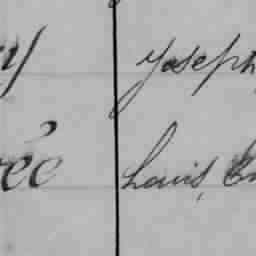 y Joseph
ée Louis